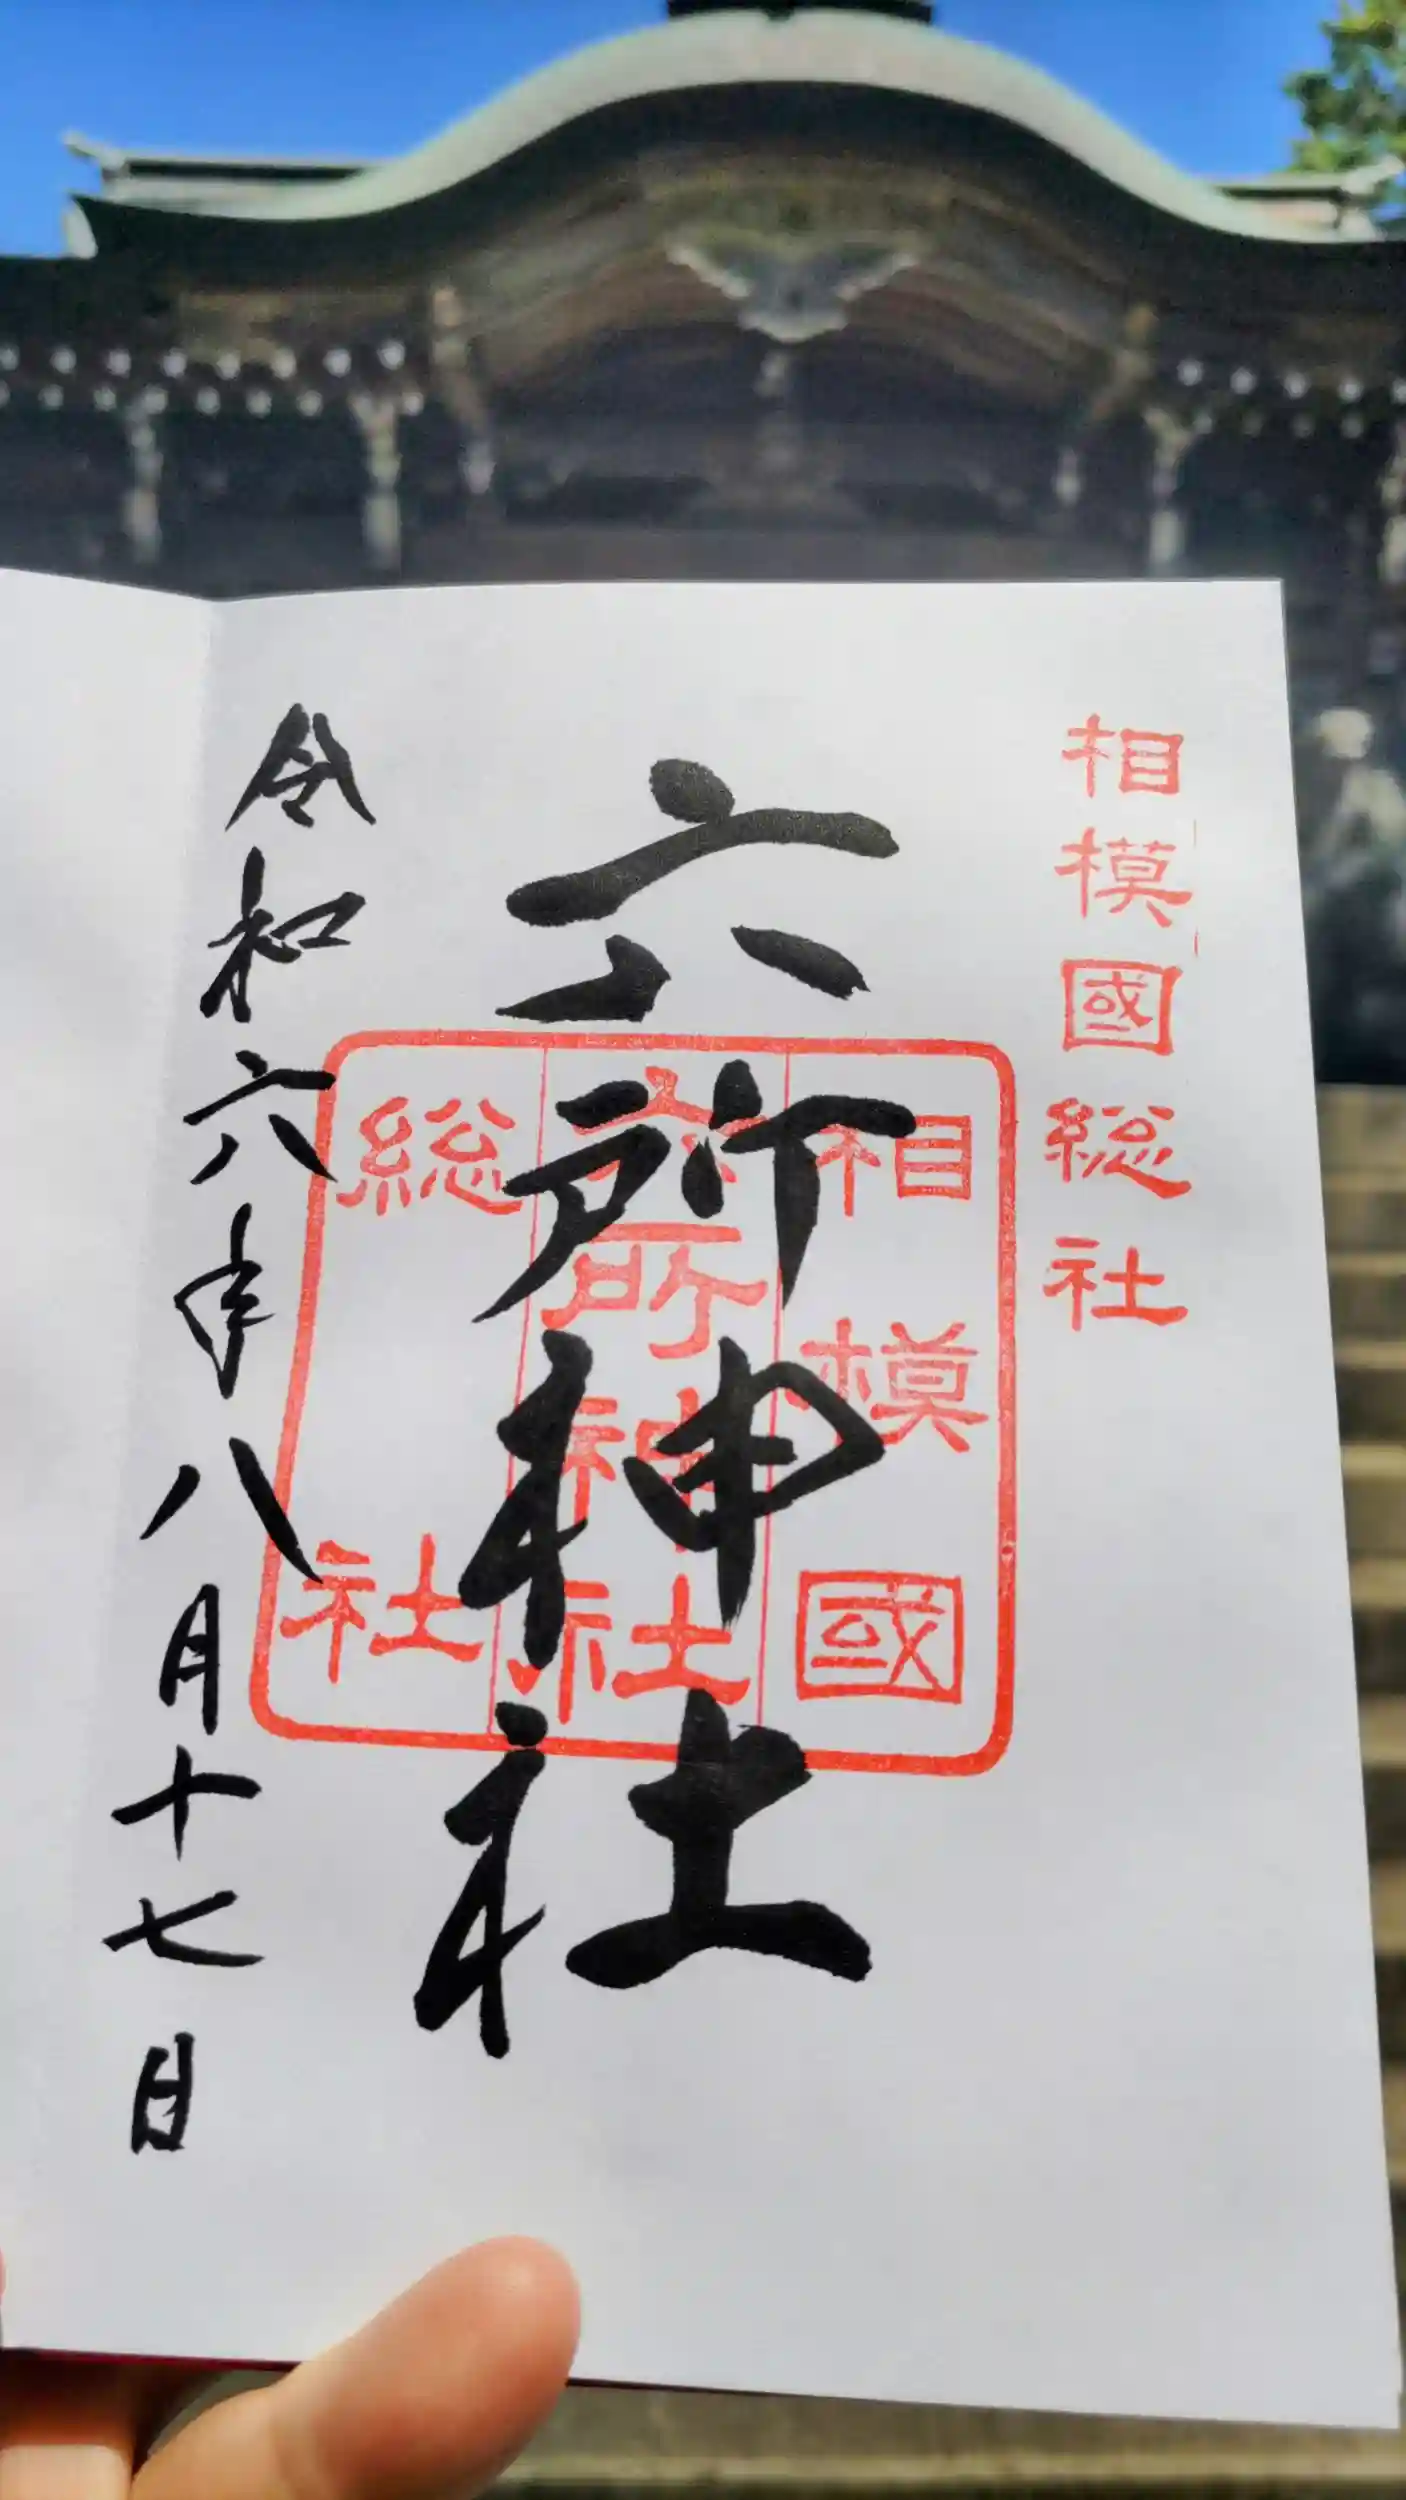 相模國総社
六所神社
相模國
六所神社
総社
令和六年八月十七日